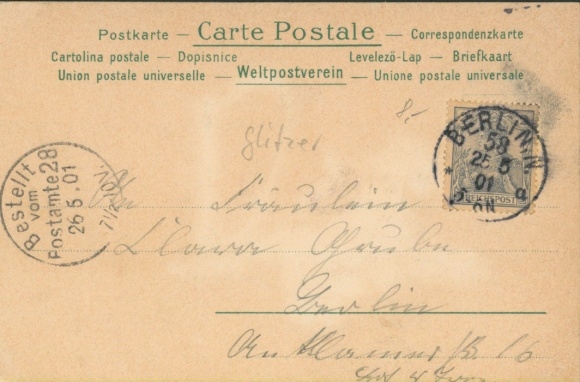 Postkarte — Carte Postale — Correspondenzkarte
Cartolina postale — Dopisnice Levelező-Lap — Briefkaart
Union postale universelle — Weltpostverein — Unione postale universale
8.-
Glitzer
BERLIN.N.
58
25 5
01
REICHSPOST
Bestellt
vom
Postamte 28
26.5.01
An Fräulein
Clara Grube
Berlin